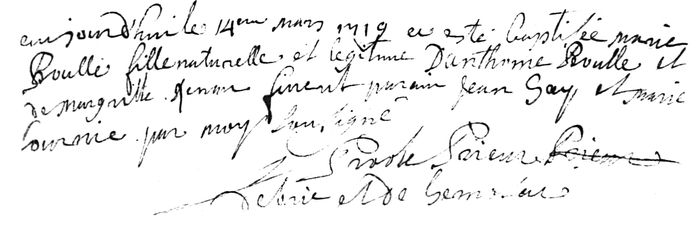 aujourd'huy le 14eme mars 1719 a esté baptisée marie
Roulle fille naturelle et legitime D'anthoine Roulle et
de margritte furent parain Jean Gay et marie
par moy sousigné
Prieur Prieur
et de